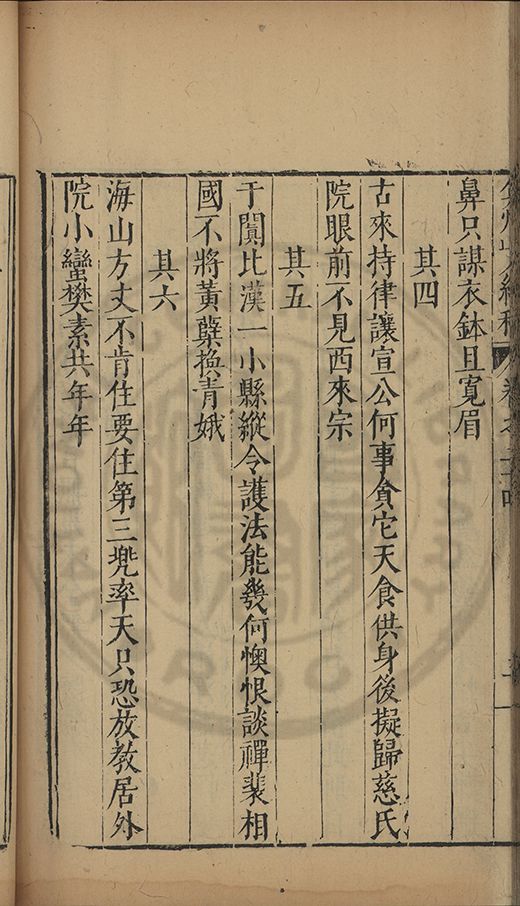 鼻只謀衣鉢且寛眉
其四
古來持律讓宣公何事貪它天食供身後擬歸慈氏
院眼前不見西來宗
其五
于闐比漢一小縣縱令護法能幾何懊恨談禪裴相
國不將黃蘗換青娥
其六
海山方丈不肯住要住第三兠率天只恐放教居外
院小蠻樊素共年年